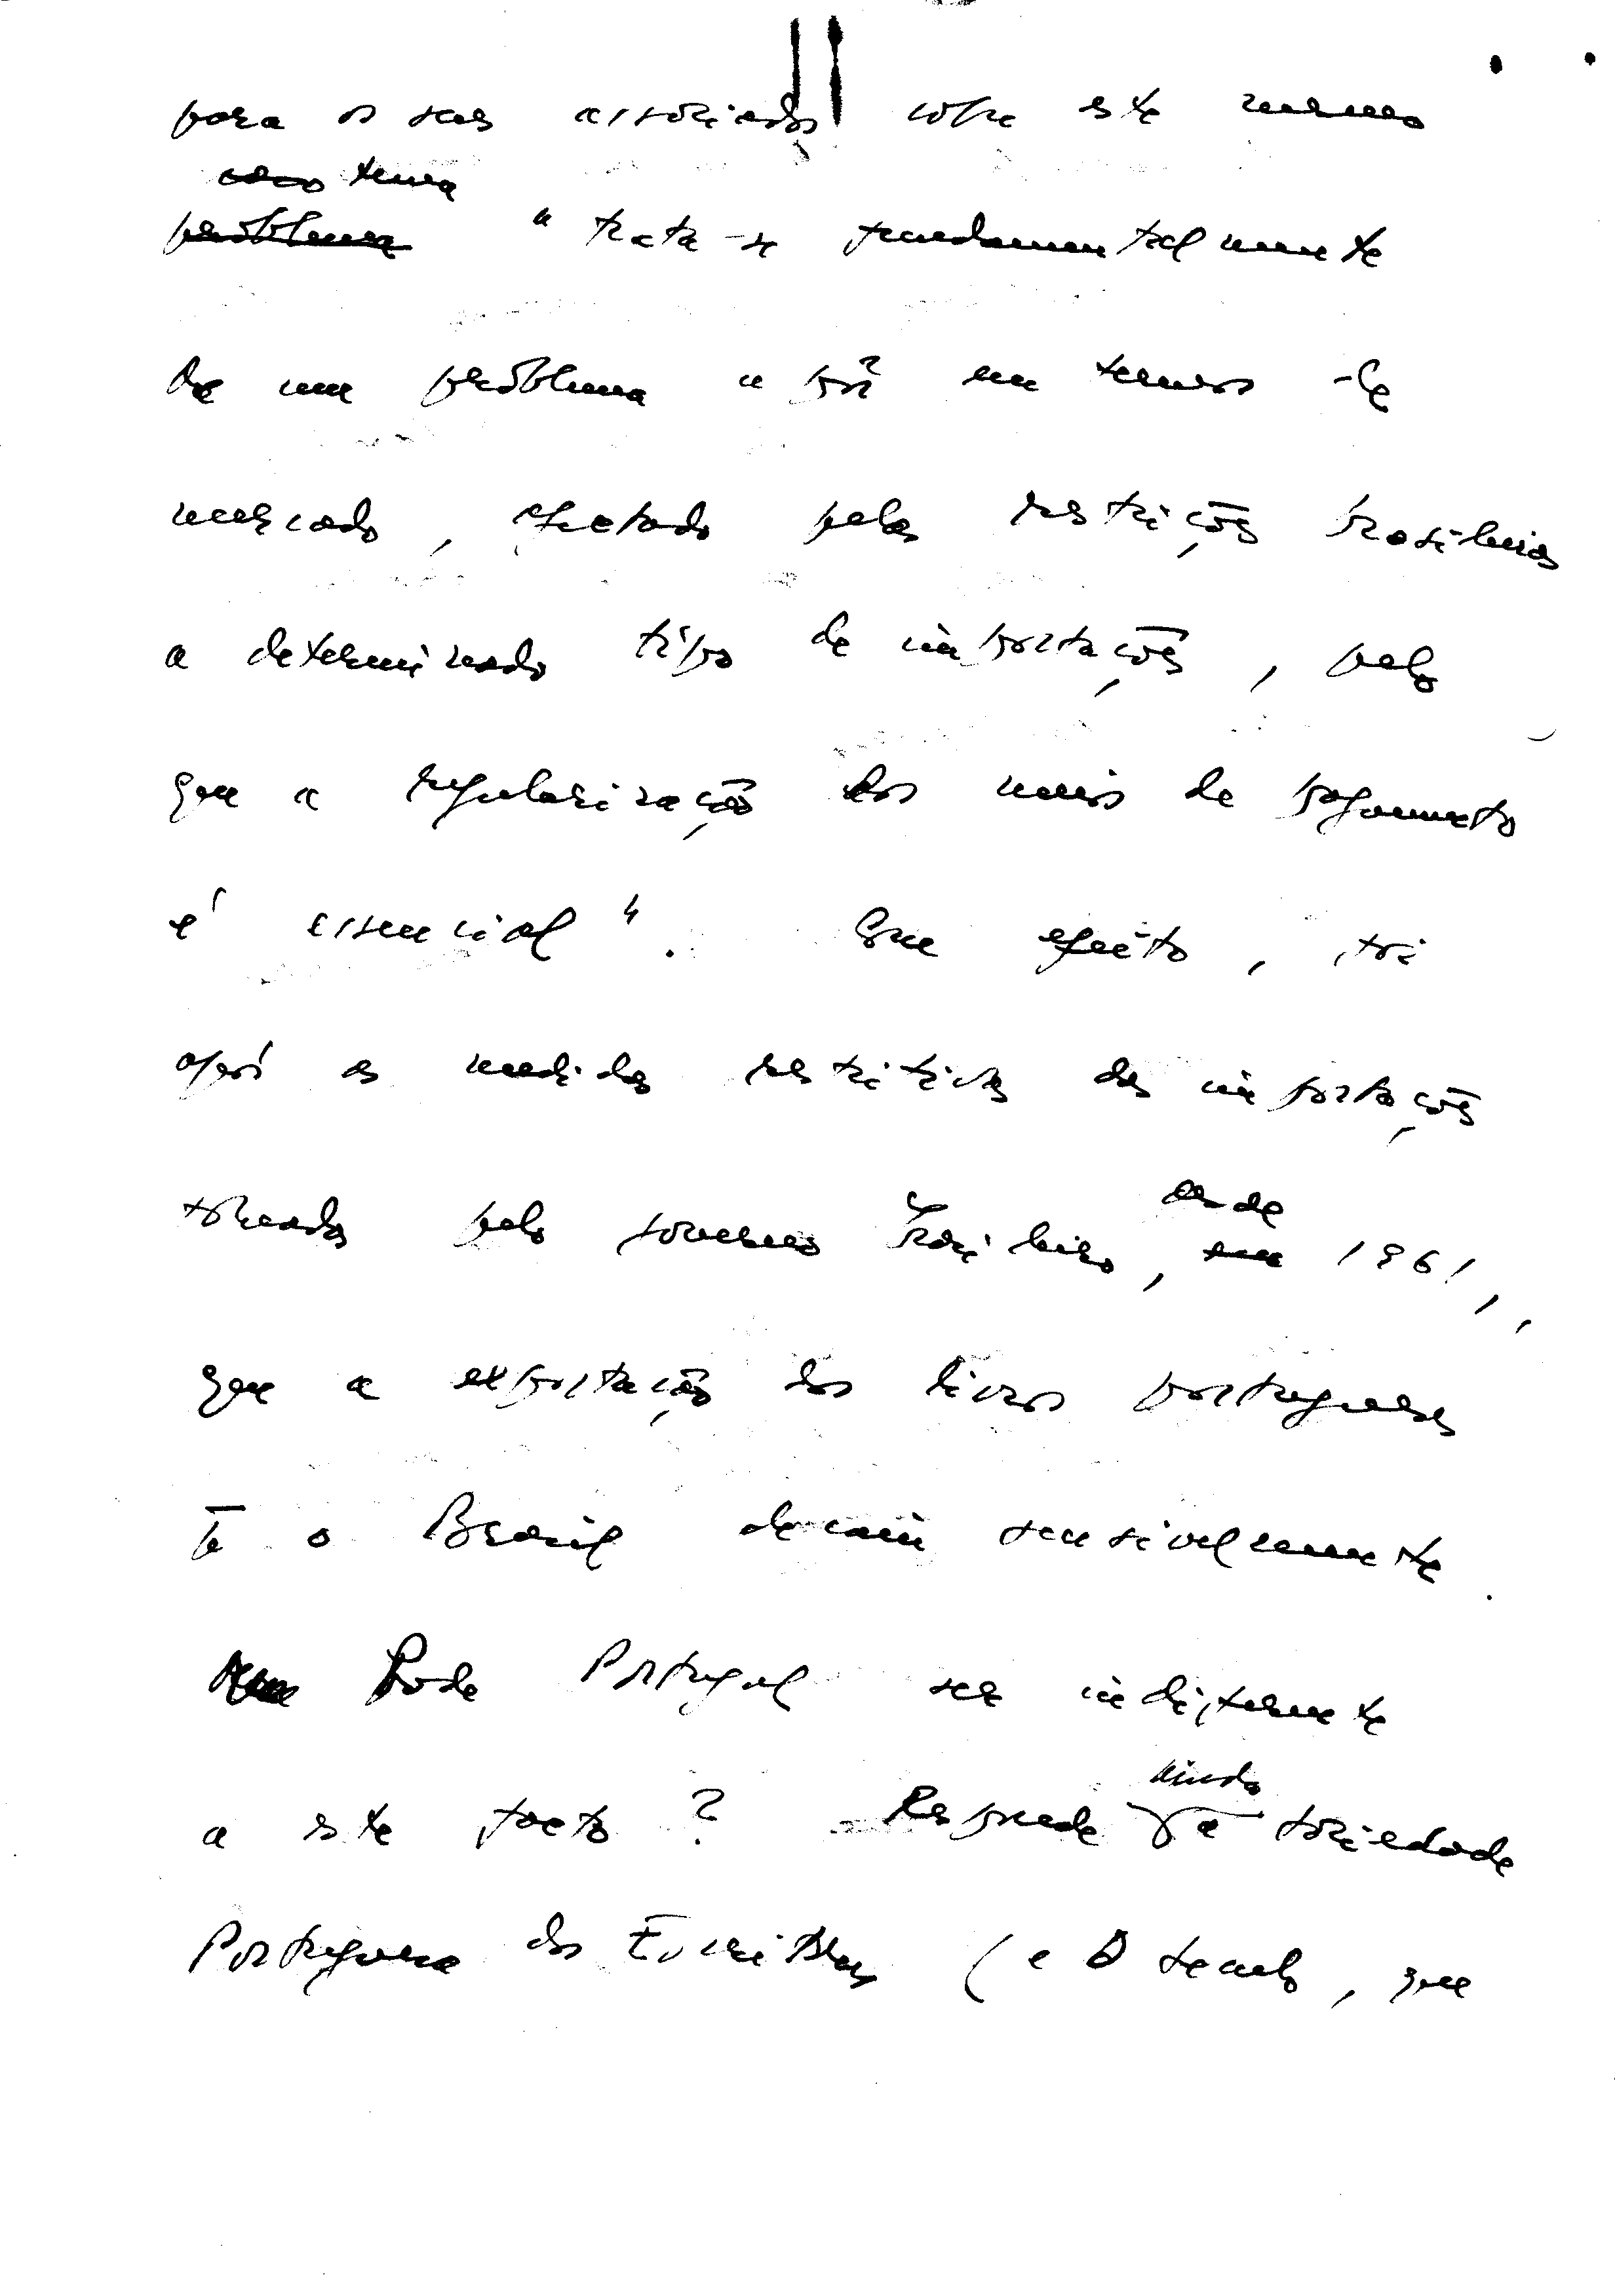 para os seus associados sobre este mesmo
caso tema
problema "trata-se fundamentalmente
de um problema a pôr em termos de
mercado, afectado pelas restrições brasileiras
a determinado tipo de importações, pelo
que a regularização dos meios de pagamento
é essencial". Com efeito, foi
após as medidas restritivas das importações
tomadas pelo governo brasileiro, em desde 1961,
que a exportação dos livros portugueses
p/ o Brasil decaiu sensivelmente.
Pode Portugal ser indiferente
a este facto? Responde ainda a Sociedade
Portuguesa dos Escritores (e O tenelo, que